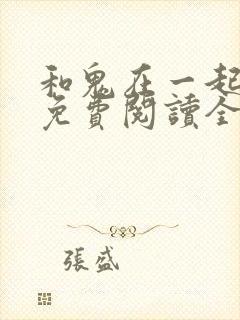 和鬼在一起
免費閱讀全
張盛